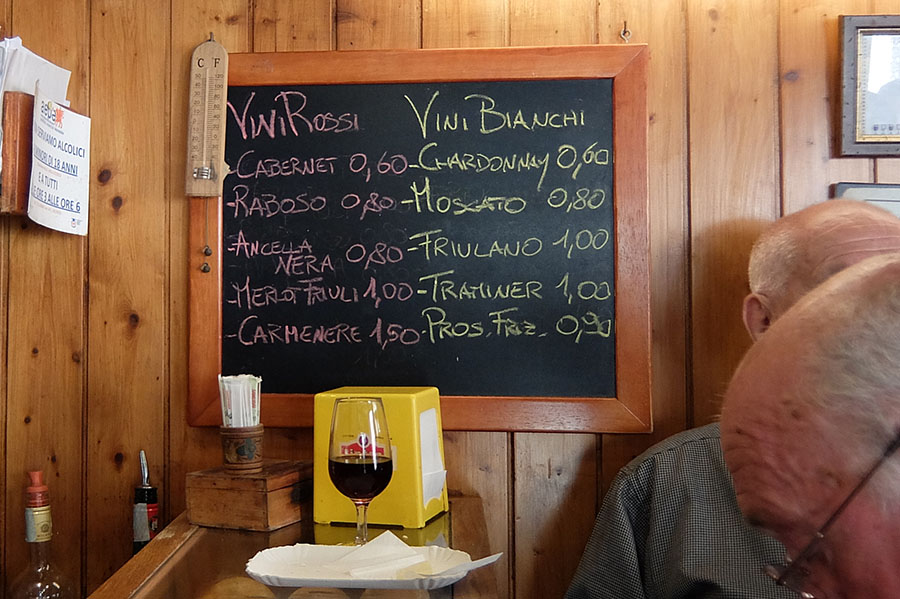 C F
VINI ROSSI
-CABERNET 0,60
-RABOSO 0,80
-ANCELLA NERA 0,80
-MERLOT FRIULI 1,00
-CARMENERE 1,50
VINI BIANCHI
-CHARDONNAY 0,60
-MOSCATO 0,80
-FRIULANO 1,00
-TRAMINER 1,00
-PROS. FRIZ. 0,90
ALCOLICI
DI 18 ANNI
E A TUTTI
ORE 3 ALLE ORE 6